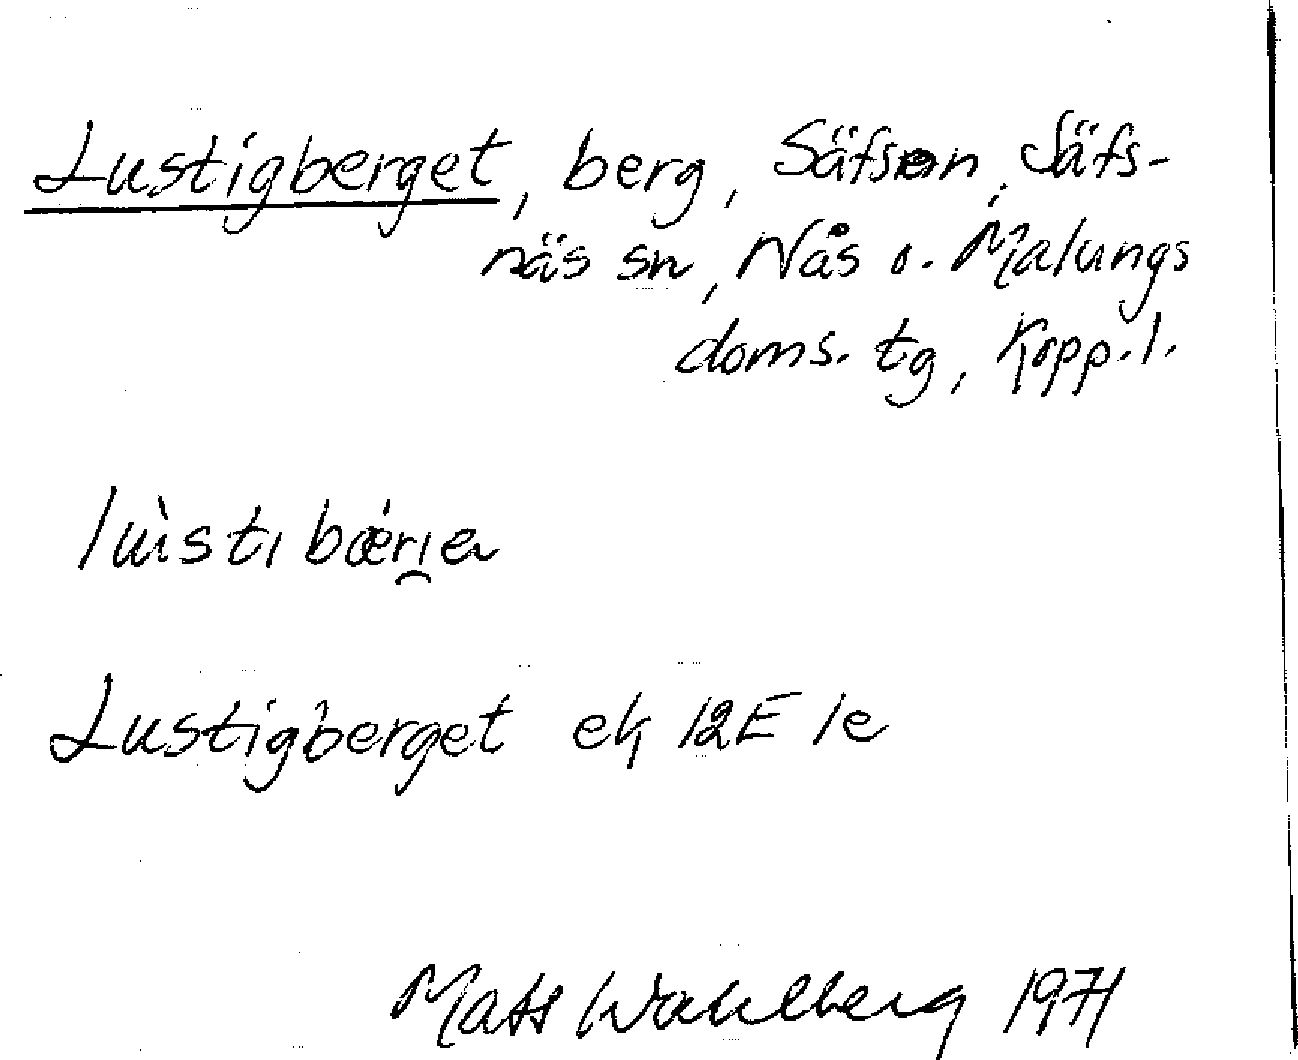 Lustigberget, berg, Säfsen, Säfs-
näs sn, Nås o. Malungs
doms. tg, Kopp. l.
lùstɩ bǽrɩ̯a
Lustigberget ek 12E 1e
Mats Wahlberg 1971